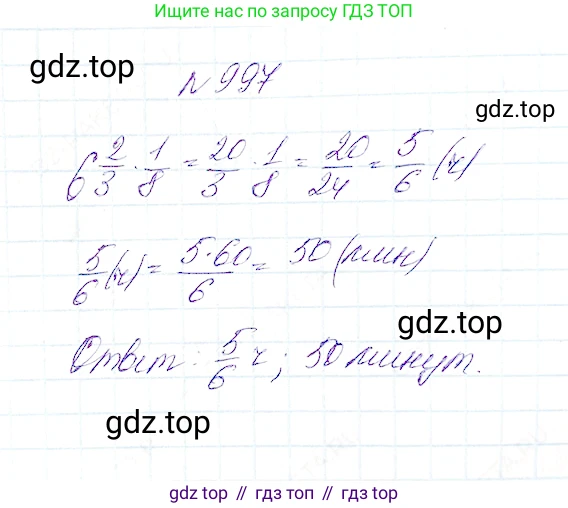 Ищите нас по запросу ГДЗ ТОП
gdz.top
№997
gdz.top
6 2/3 · 1/8 = 20/3 · 1/8 = 20/24 = 5/6 (ч)
5/6 (ч) = 5·60/6 = 50 (мин)
gdz.top
Ответ: 5/6 ч; 50 минут.
gdz.top
gdz.top // гдз топ // гдз.топ